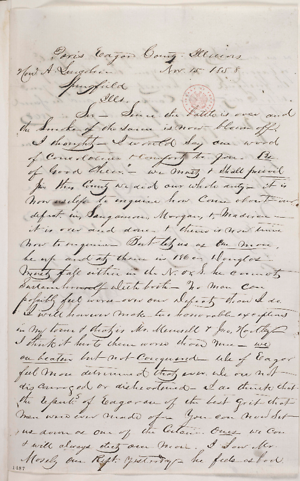 Paris Edgar County Illinois
Hon. A Lincoln Nov. 15 1858
Springfield
Ills.
Sir— Since the battle is over and
the smoke of the same is now blown off
I thought I would say one word
of Consolation & Comfort to you
of Good Cheer— we must & shall prevail
In this County we did our whole duty— it is
now useless to enquire how Came about our
defeat in Sangamon, Morgan, & Madison—
it is over and done & there is no time
now to enquire— But let us as one man,
be up and at them in 1860 Douglas
Must fall either in the N. or S. he cannot
both— No man can
possibly feel worse over our defeat than I do
I will however make two honorable exceptions
in my town & that is Mr. &
I think it hurts them worse than me— we
are beaten but not Conquered. We of Edgar
feel more determined than ever we are not
discouraged or disheartened I do think that
the Republicans of Edgar are of the best Grit that
men were ever made of— You can now set
us down as one of the Certain Ones we can
& will always elect our man. I saw Mr
Mosely our Rept. yesterday— he feels as bad